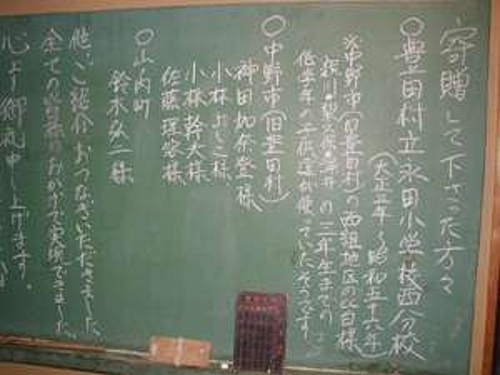 寄贈して下さった方々
◎豊田村立永田小学校西分校
(大正三年〜昭和五十六年)
※中野市(旧豊田村)の西組地区の父母様
の二年生までの
低学年の子供達が使っていたそうです。
◎中野市(旧豊田村)
神田加奈登様
小林よしこ様
小林幹夫様
佐藤瑳容様
◎山ノ内町
鈴木弘一様
他、ご紹介おつなぎいただきました
全ての皆様のおかげで実現できました。
心より御礼申し上げます。